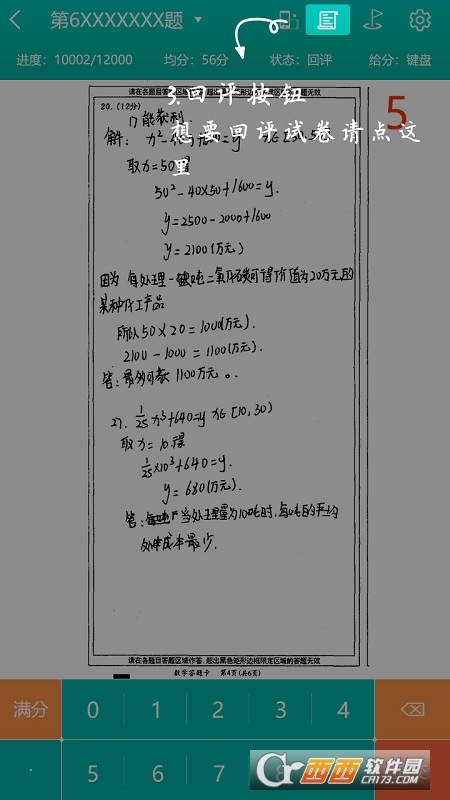 第6XXXXXXX题
进度：10002/12000 均分：56分 状态：回评 给分：键盘
请在各题目答题区域内作答，超出黑色矩形边框限定区域的答案无效
5
20. (12分)
3.回评按钮
想要回评试卷请点这
里
1) 能获利.
解：
取x=50得
50²-40×50+1600=y.
y=2500-2000+1600
y=2100(万元)
因为 每处理一吨二氧化碳可得价值为20万元的
某种化工产品
所以50×20=1000(万元).
2100-1000=1100(万元)
答：最多可获1100万元。
27. 1/25 x³+640=y x∈[10,30)
取x=10.得
1/25×10³+640=y.
y=680(万元).
答：当处理量为10吨时,每吨的平均
处理成本最少.
请在各题目答题区域作答，超出黑色矩形边框限定区域的答题无效
数学答题卡 第4页(共6页)
满分 0 1 2 3 4
· 5 6 7 8
西西软件园
CR173.COM